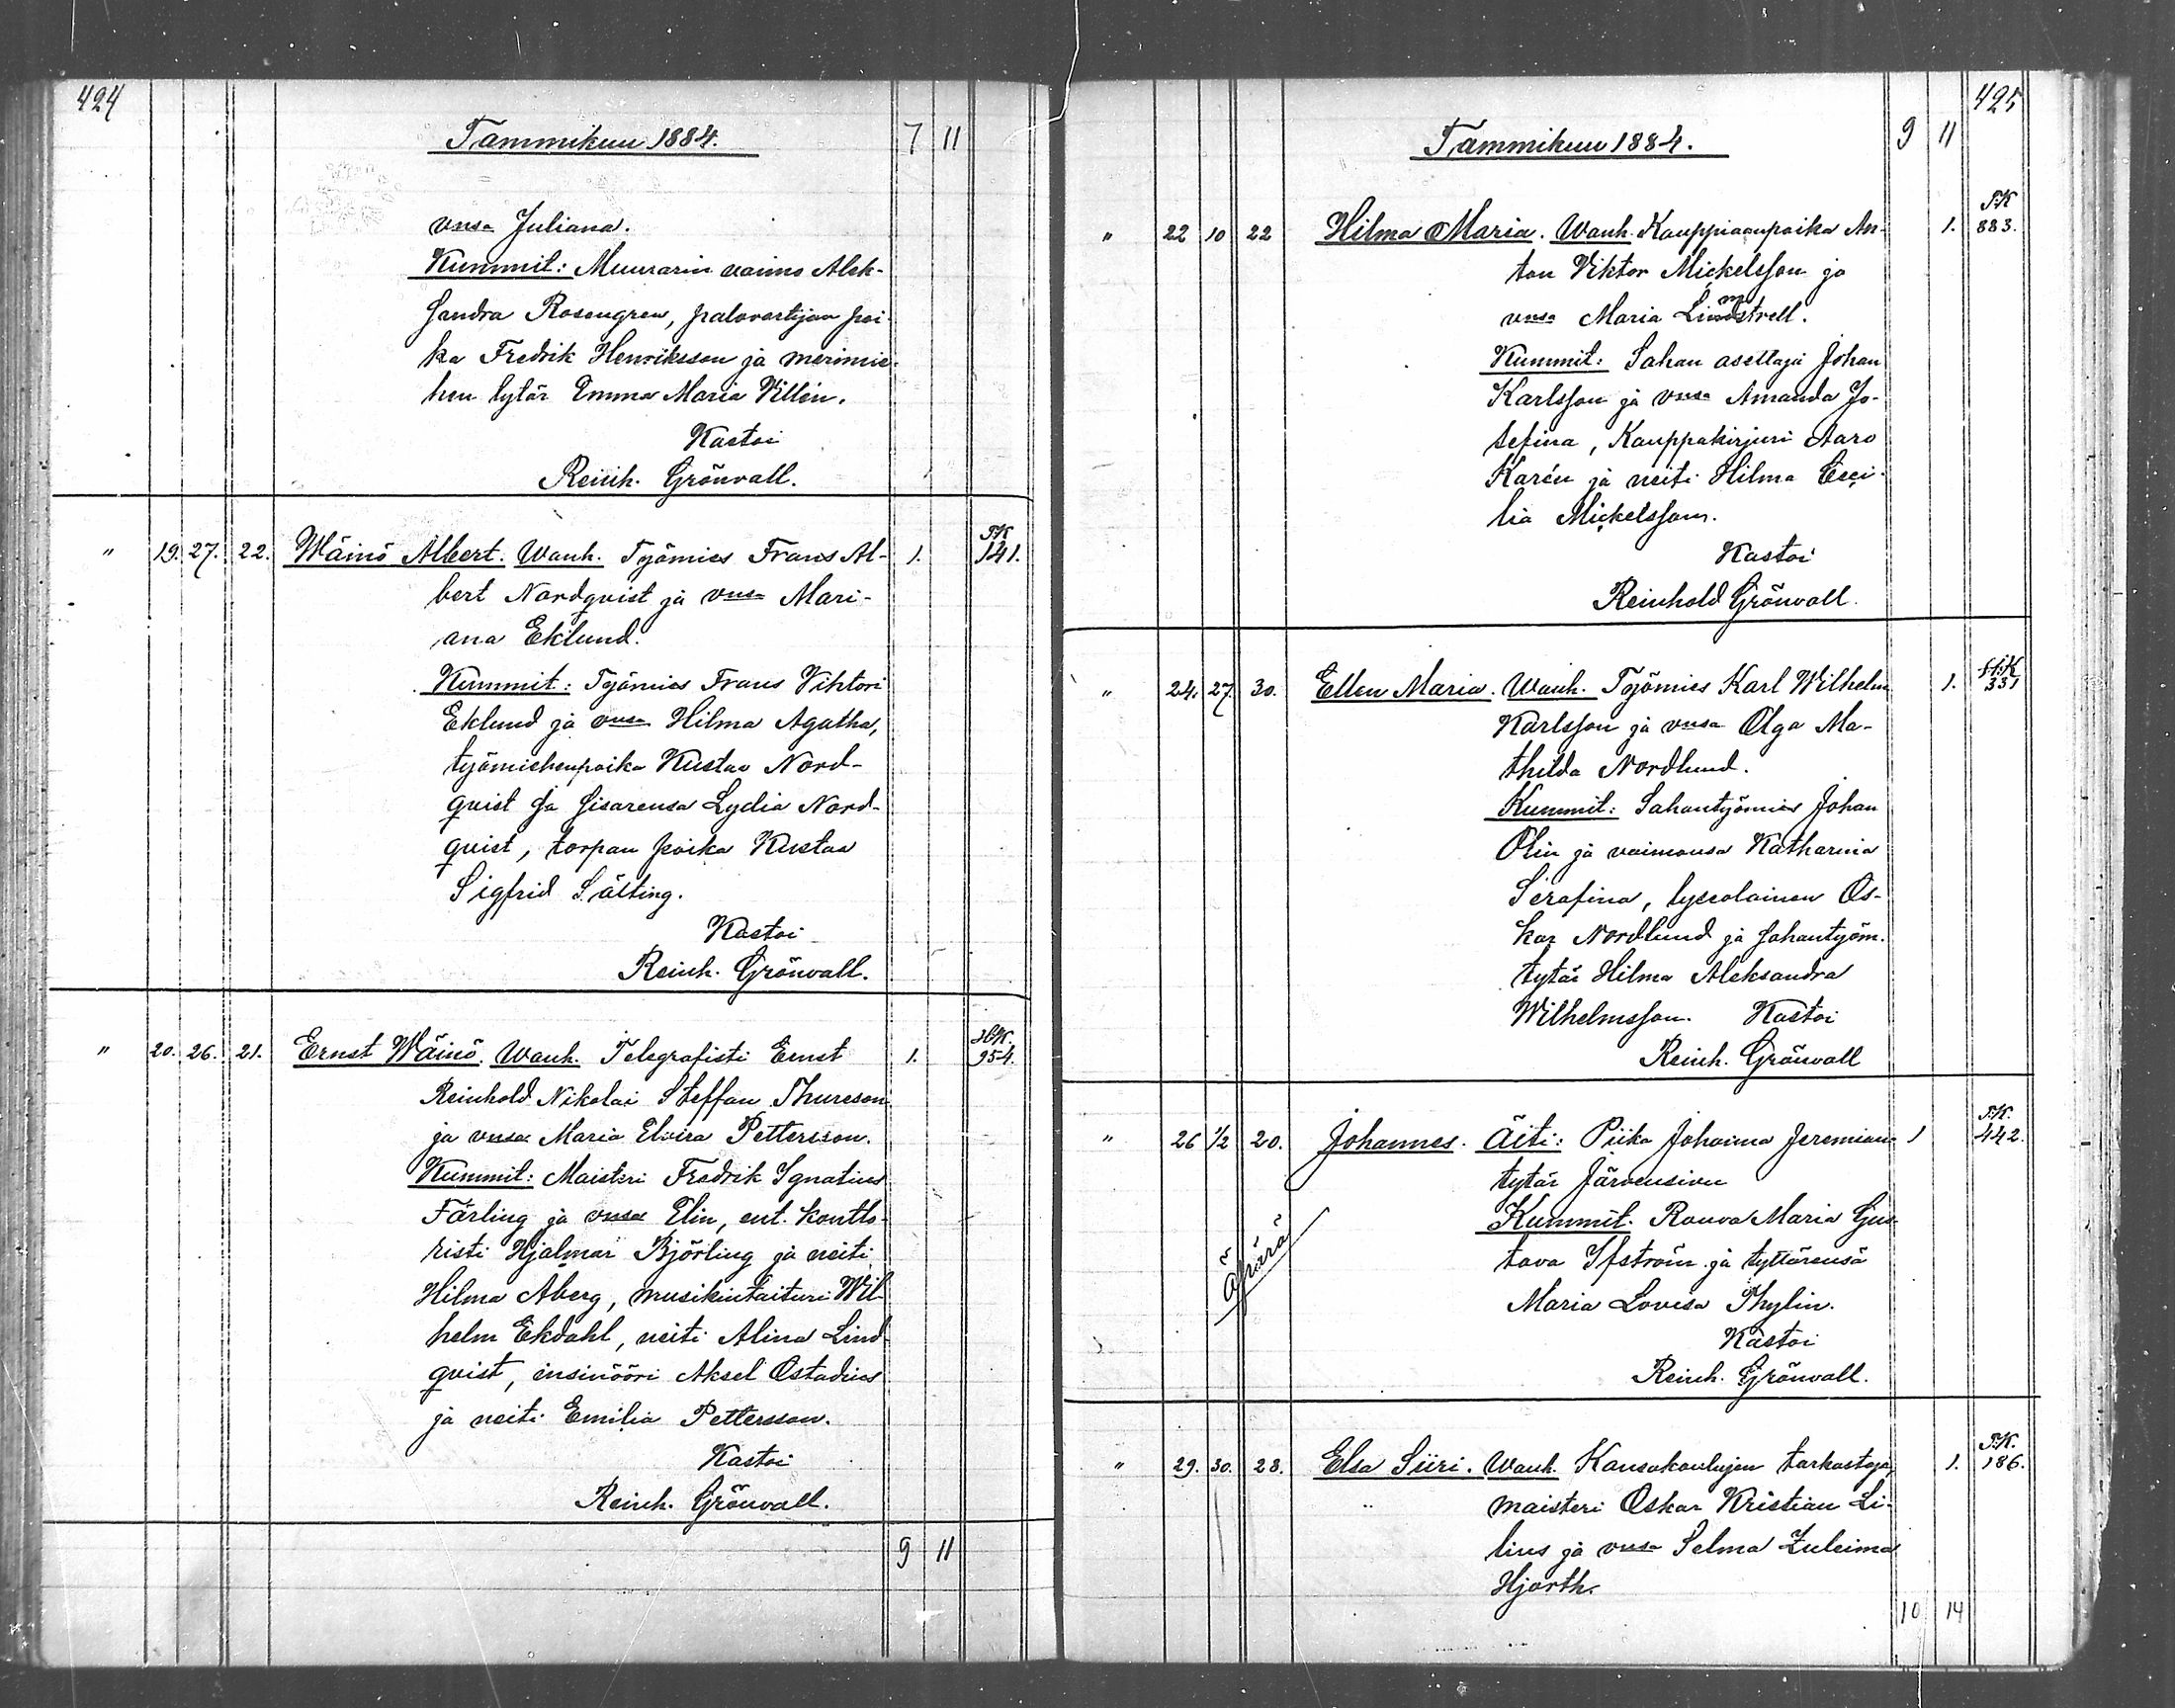 424
Tammikuu 1884. 7 11
vnsa Juliana.
Kummit: Muurarin vaimo Alek-
sandra Rosengren, palovartijan poi-
ka Fredrik Henriksson ja merimie-
hen tytär Emma Maria Villén.
Kastoi
Reinh. Grönvall.
" 19. 27. 22. Wäinö Albert. Wanh. Työmies Frans Al- 1. TK 141.
bert Nordqvist ja vnsa Mari-
ana Eklund.
Kummit: Työmies Frans Viktori
Eklund ja vnsa Hilma Agatha,
työmiehenpoika Kustaa Nord-
qvist ja sisarensa Lydia Nord-
qvist, torpan poika Kustaa
Sigfrid Sälting.
Kastoi
Reinh. Grönvall.
" 20. 26. 21. Ernst Wäinö. Wanh. Telegrafisti Ernst 1. 954.
Reinhold Nikolai Steffan Thureson
ja vnsa Maria Elvira Pettersson.
Kummit: Maisteri Fredrik Ignatius
Färling ja vnsa Elin, ent. kontto-
risti Hjalmar Björling ja neiti
Hilma Åberg, musikintaituri Wil-
helm Ekdahl, neiti Alina Lind-
qvist, insinööri Aksel Ostadius
ja neiti Emilia Pettersson.
Kastoi
Reinh. Grönvall.
9 11
425
Tammikuu 1884. 9 11
" 22 10 22 Hilma Maria. Wanh. Kauppiaanpoika An- 1. TK 883.
ton Viktor Mickelsson ja
vnsa Maria Lindstrell.
Kummit: Sahan asettaja Johan
Karlsson ja vnsa Amanda Jo-
sefina, Kauppakirjuri Aaro
Karén ja neiti Hilma Ceci-
lia Mickelsson.
Kastoi
Reinhold Grönvall.
" 24. 27. 30. Ellen Maria. Wanh. Työmies Karl Wilhelm 1. 331
Karlsson ja vnsa Olga Ma-
thilda Nordlund.
Kummit: Sahantyömies Johan
Olin ja vaimonsa Katharina
Serafina, lyseolainen Os-
kar Nordlund ja sahantyöm.
tytär Hilma Aleksandra
Wilhelmsson. Kastoi
Reinh. Grönvall
" 26 1/2 20. Johannes. Äiti: Piika Johanna Jeremian- 1 T.K. 442.
tytär Järvensivu
Kummit. Rouva Maria Gus-
tava Ifström ja tyttärensä
Maria Lovisa Thylin.
Kastoi
Reinh. Grönvall.
Äpärä
" 29. 30. 28. Elsa Siiri. Wanh. Kansakoulujen tarkastaja, 1. T.K. 186.
maisteri Oskar Kristian Li-
lius ja vnsa Selma Zuleima
Hjorth.
10 14